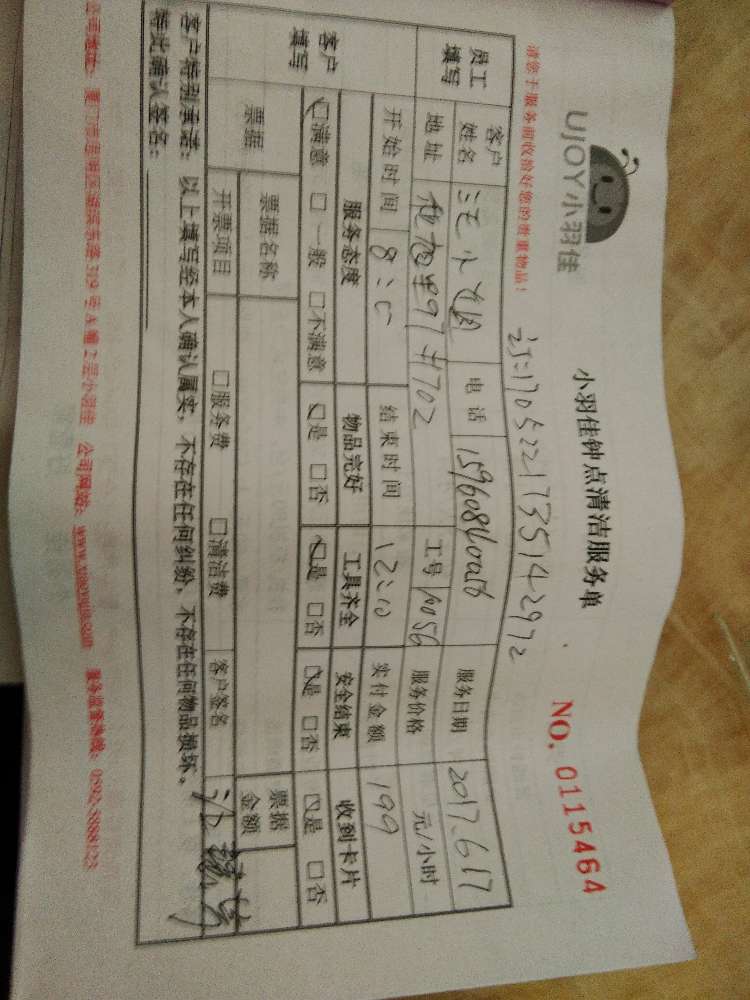 UJOY小羽佳
小羽佳钟点清洁服务单
NO. 0115464
请您于服务前收拾好您的贵重物品!
25121705221735142972
员工填写
客户姓名 江小姐 电话 服务日期 2017.6.17
地址 #702 工号 服务价格 元/小时
客户填写
开始时间 结束时间 12:10 实付金额 199
服务态度 物品完好 工具齐全 安全结束 收到卡片
☑满意 □一般 □不满意 ☑是 □否 ☑是 □否 ☑是 □否 ☑是 □否
票据 票据名称 票据金额
开票项目 □服务费 □清洁费 客户签名
客户特别承诺:以上填写经本人确认属实,不存在任何纠纷,不存在任何物品损坏。
特此确认签名:
公司网站: